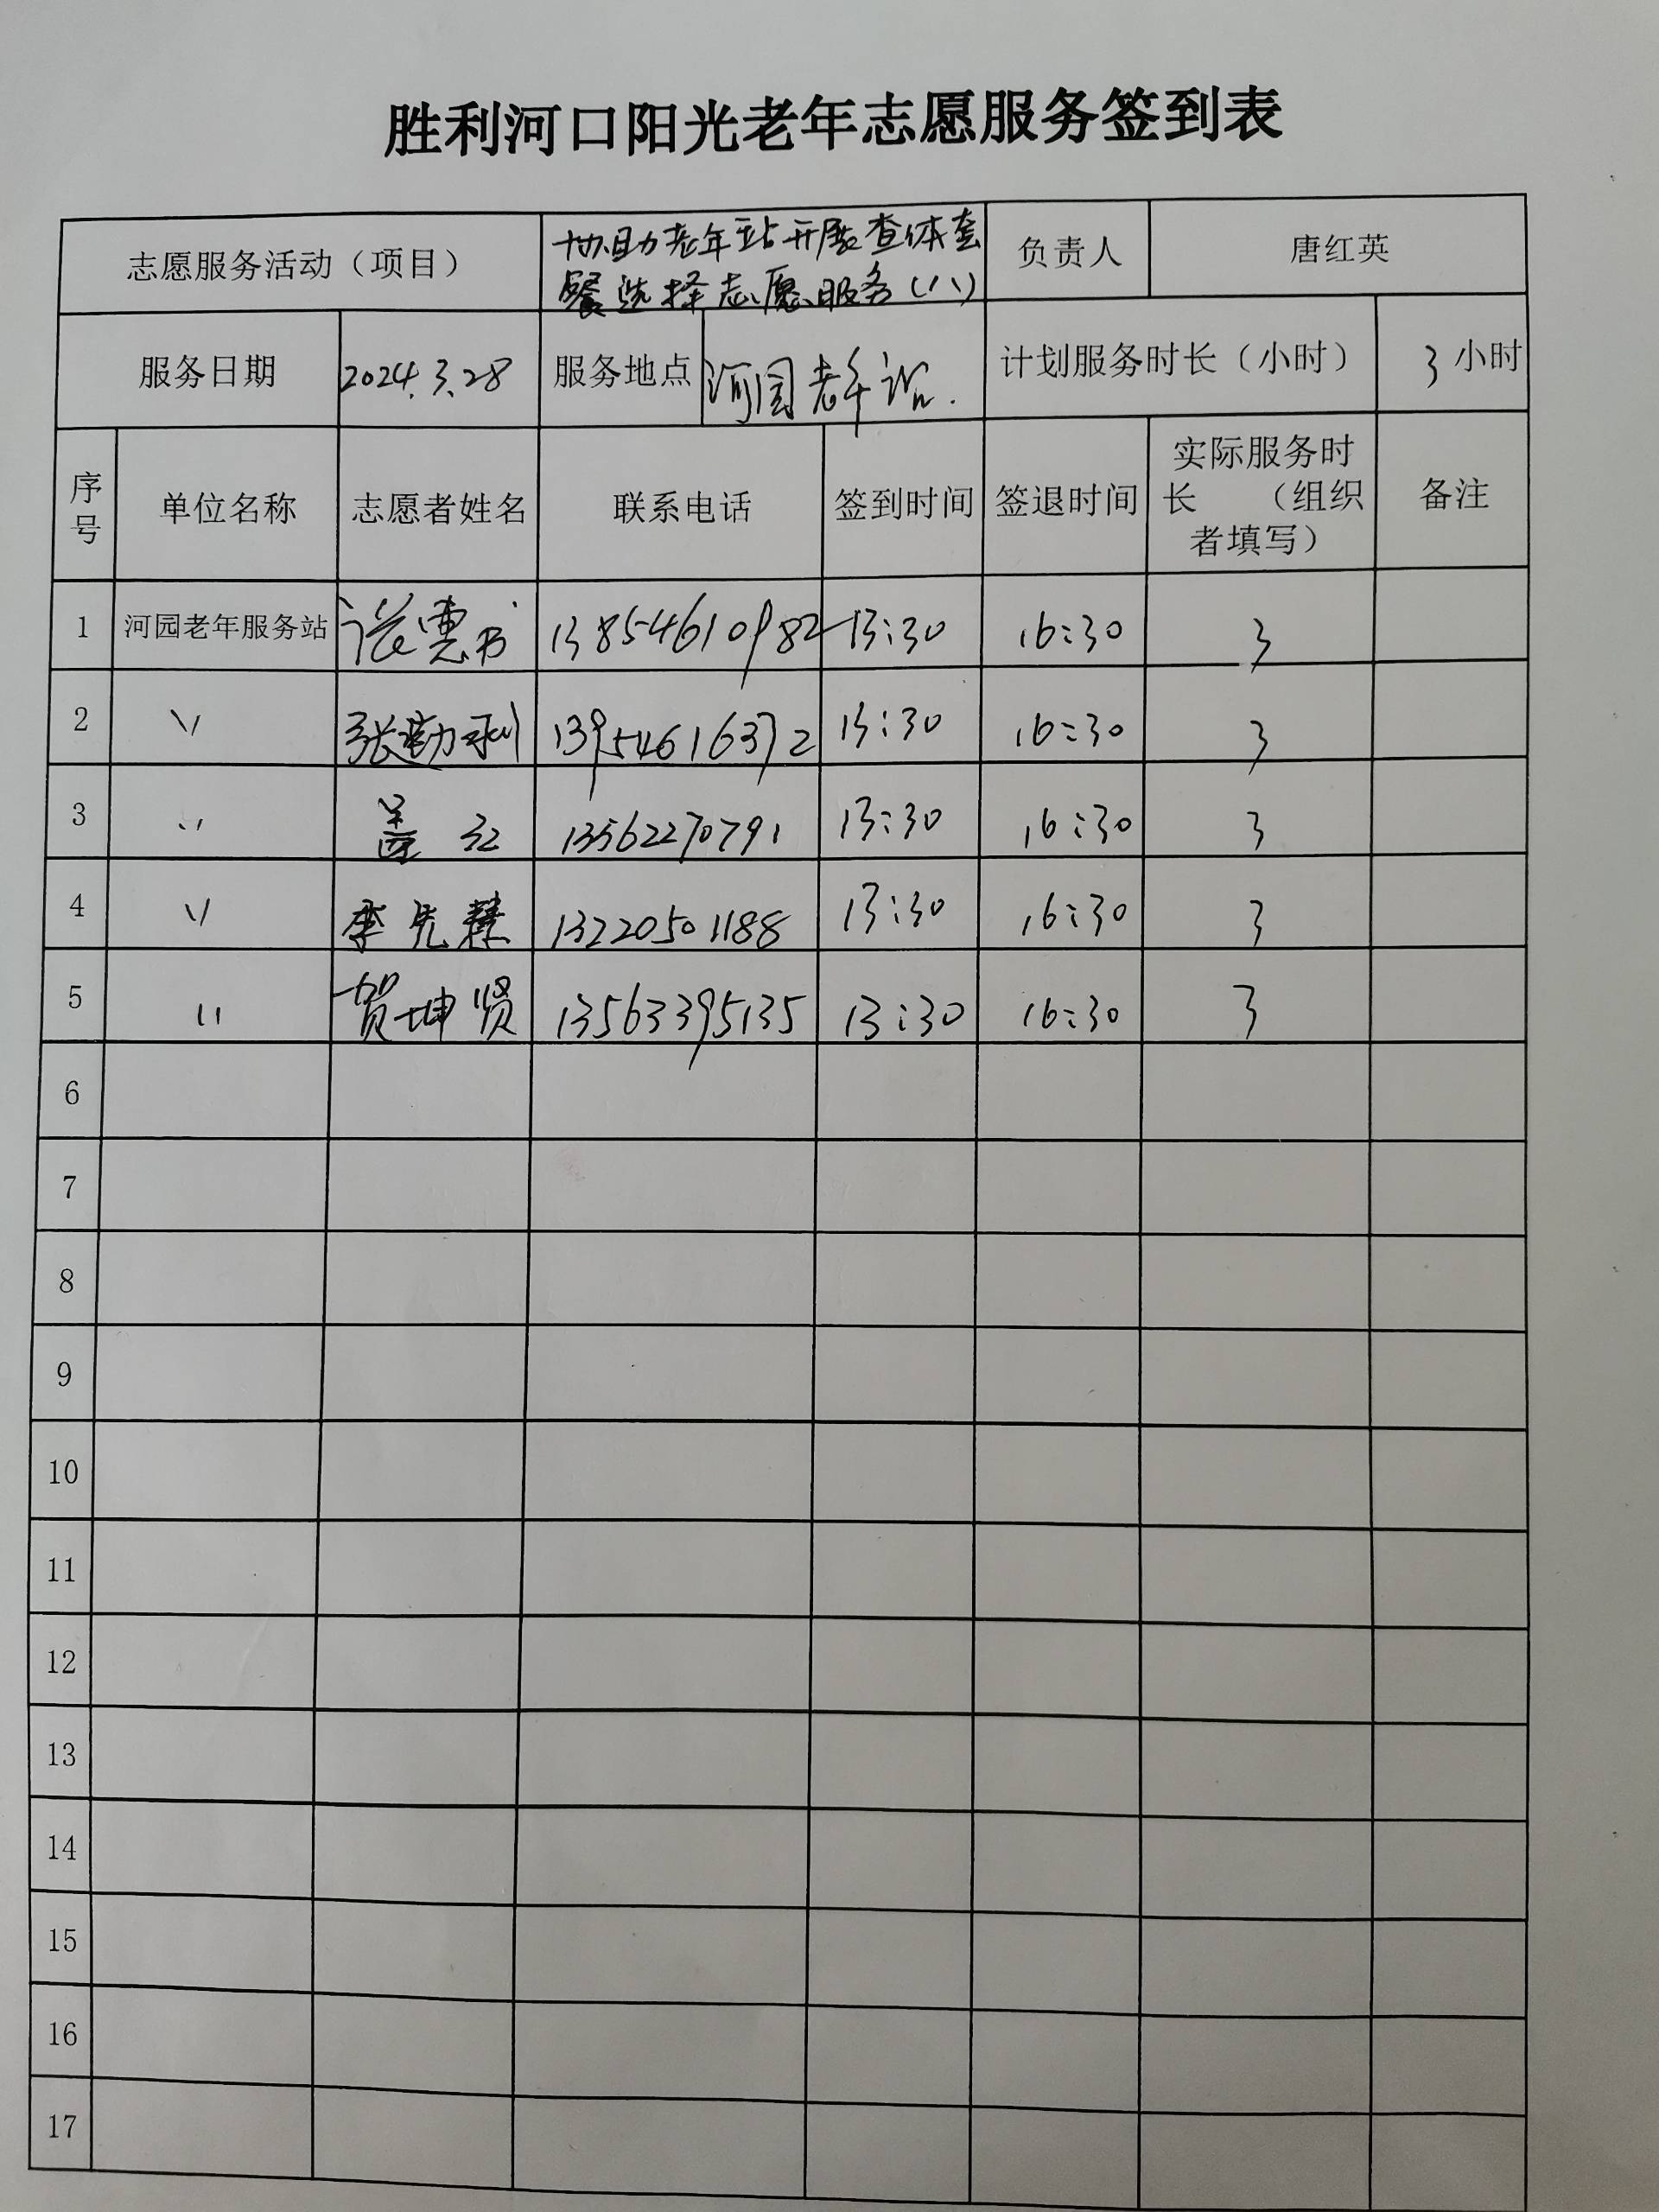 胜利河口阳光老年志愿服务签到表
志愿服务活动（项目） 协助老年站开展查体套 负责人 唐红英
餐选择志愿服务（八）
服务日期 2024.3.28 服务地点 河园老年站. 计划服务时长（小时） 3 小时
序号 单位名称 志愿者姓名 联系电话 签到时间 签退时间 实际服务时长 （组织者填写） 备注
1 河园老年服务站 13854610982 13:30 16:30 3
2 〃 张勤利 13954616372 13:30 16:30 3
3 〃 盖红 13562270791 13:30 16:30 3
4 〃 李先慧 13220501188 13:30 16:30 3
5 〃 贺坤贤 13563395135 13:30 16:30 3
6
7
8
9
10
11
12
13
14
15
16
17